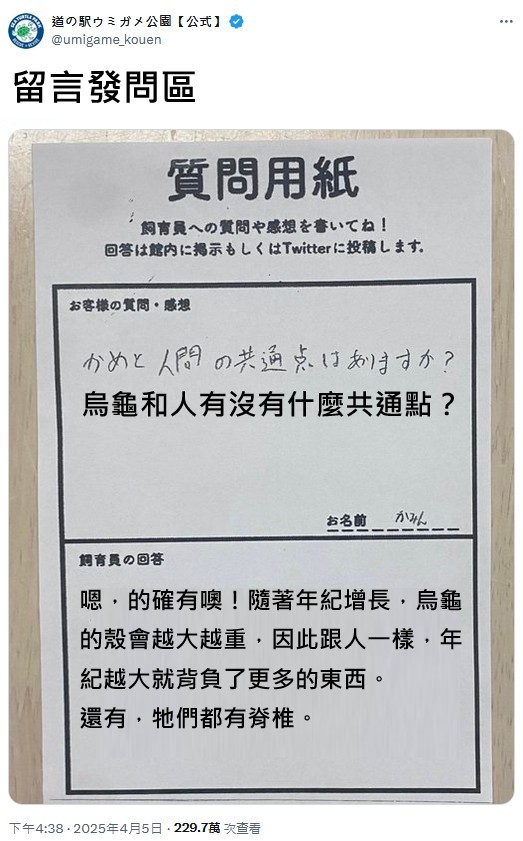 道の駅ウミガメ公園【公式】
@umigame_kouen
留言發問區
質問用紙
飼育員への質問や感想を書いてね！
回答は館内に掲示もしくはTwitterに投稿します。
お客様の質問・感想
かめと人間の共通点はありますか？
烏龜和人有沒有什麼共通點？
お名前 かみん
飼育員の回答
嗯，的確有噢！隨著年紀增長，烏龜
的殼會越大越重，因此跟人一樣，年
紀越大就背負了更多的東西。
還有，牠們都有脊椎。
下午4:38 · 2025年4月5日 · 229.7萬 次查看